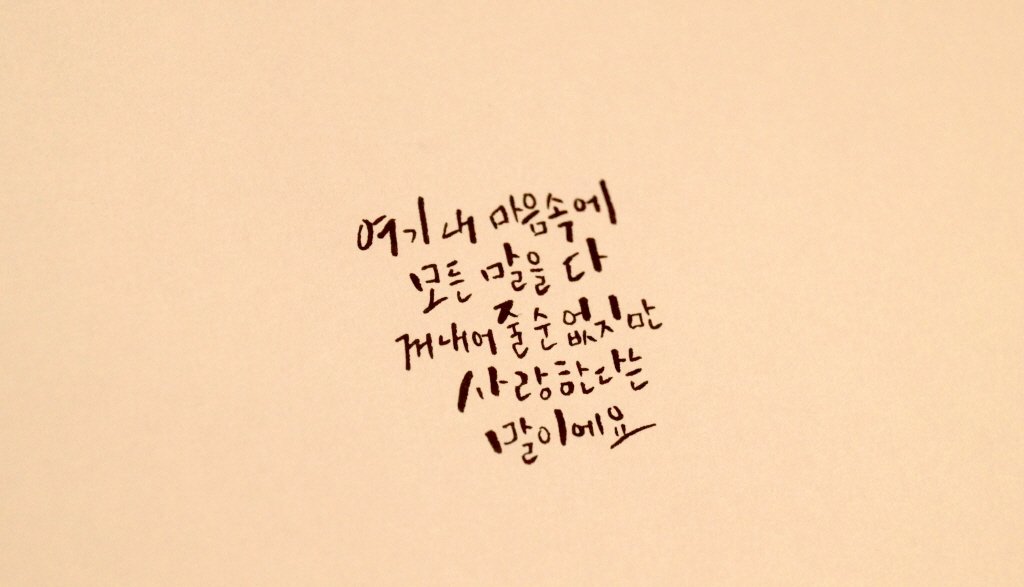 여기 내 마음속에
모든 말을 다
꺼내어 줄 순 없지만
사랑한다는
말이에요